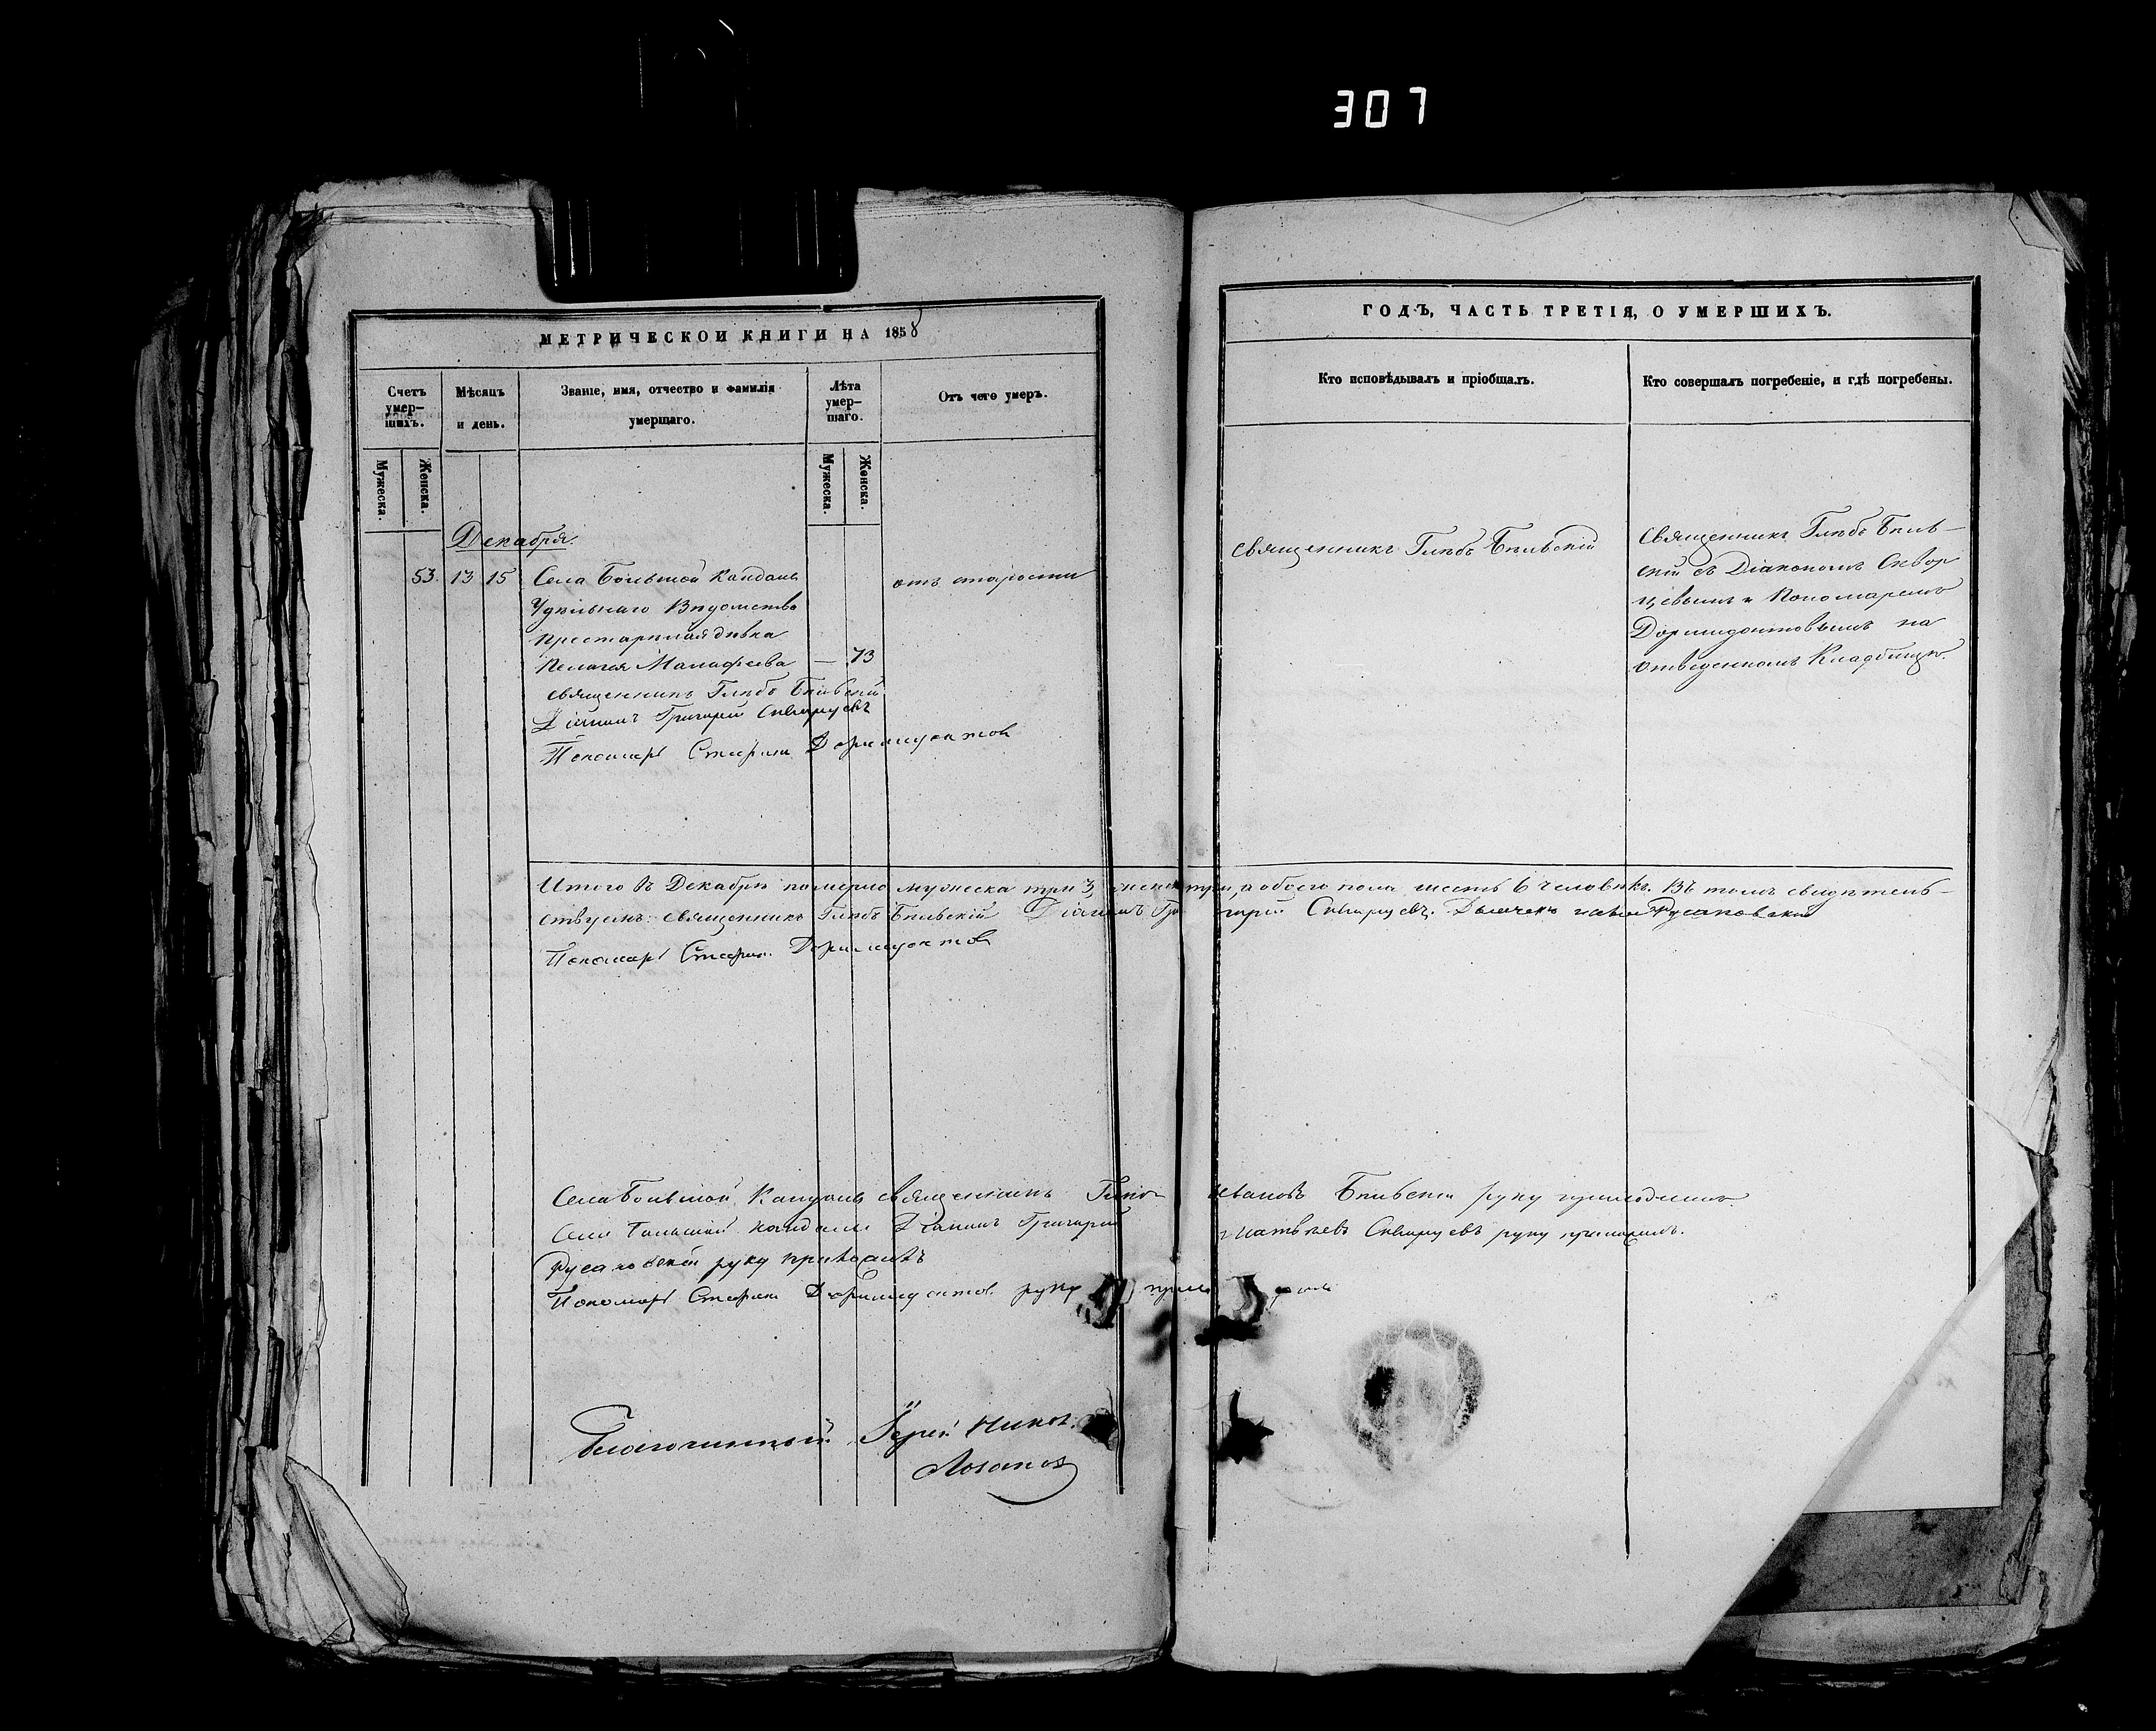 307
МЕТРИЧЕСКОЙ КНИГИ НА 1858
ГОДЪ, ЧАСТЬ ТРЕТІЯ, О УМЕРШИХЪ.
Счетъ умер-
шихъ.
Мѣсяцъ
и день.
Званіе, имя, отчество и фамилія
умершаго.
Лѣта
умер-
шаго.
Отъ чего умеръ.
Кто исповѣдывалъ и пріобщалъ.
Кто совершалъ погребеніе, и гдѣ погребены.
Мужеска.
Женска.
Мужеска.
Женска.
Декабря.
53. 13 15 Села Большой Кандалы
Удѣльнаго Вѣдомства
престарѣлая дѣвка
Пелагея Малафеева — 73
отъ старости
священникъ Глѣбъ Бѣльскій
Діаконъ Григорій Скворцовъ
Пономарь Стефанъ Доримедонтов
священникъ Глѣбъ Бѣльскій
Священникъ Глѣбъ Бѣль-
скій съ Діакономъ Сквор
цовымъ и Пономаремъ
Доримидонтовымъ на
отведенномъ Кладбищѣ.
Итого въ Декабрѣ померло мужеска три 3, женска три, а обоего пола шесть 6 человѣкъ. Въ томъ свидѣтель-
ствуемъ: священникъ Глѣбъ Бѣльскій Діаконъ Григорій Скворцовъ. Дьячекъ Русановскій
Пономарь Стефанъ Доримедонтов
Села Большой Кандалы священникъ Глѣбъ Ивановъ Бѣльскій руку приложилъ.
Села Большой Кандалы Діаконъ Григорій Матвѣевъ Скворцовъ руку приложилъ.
Русановскій руку приложилъ
Пономарь Стефанъ Доримедонтов руку приложилъ
Благочинный Іерей Никол.
Логанов